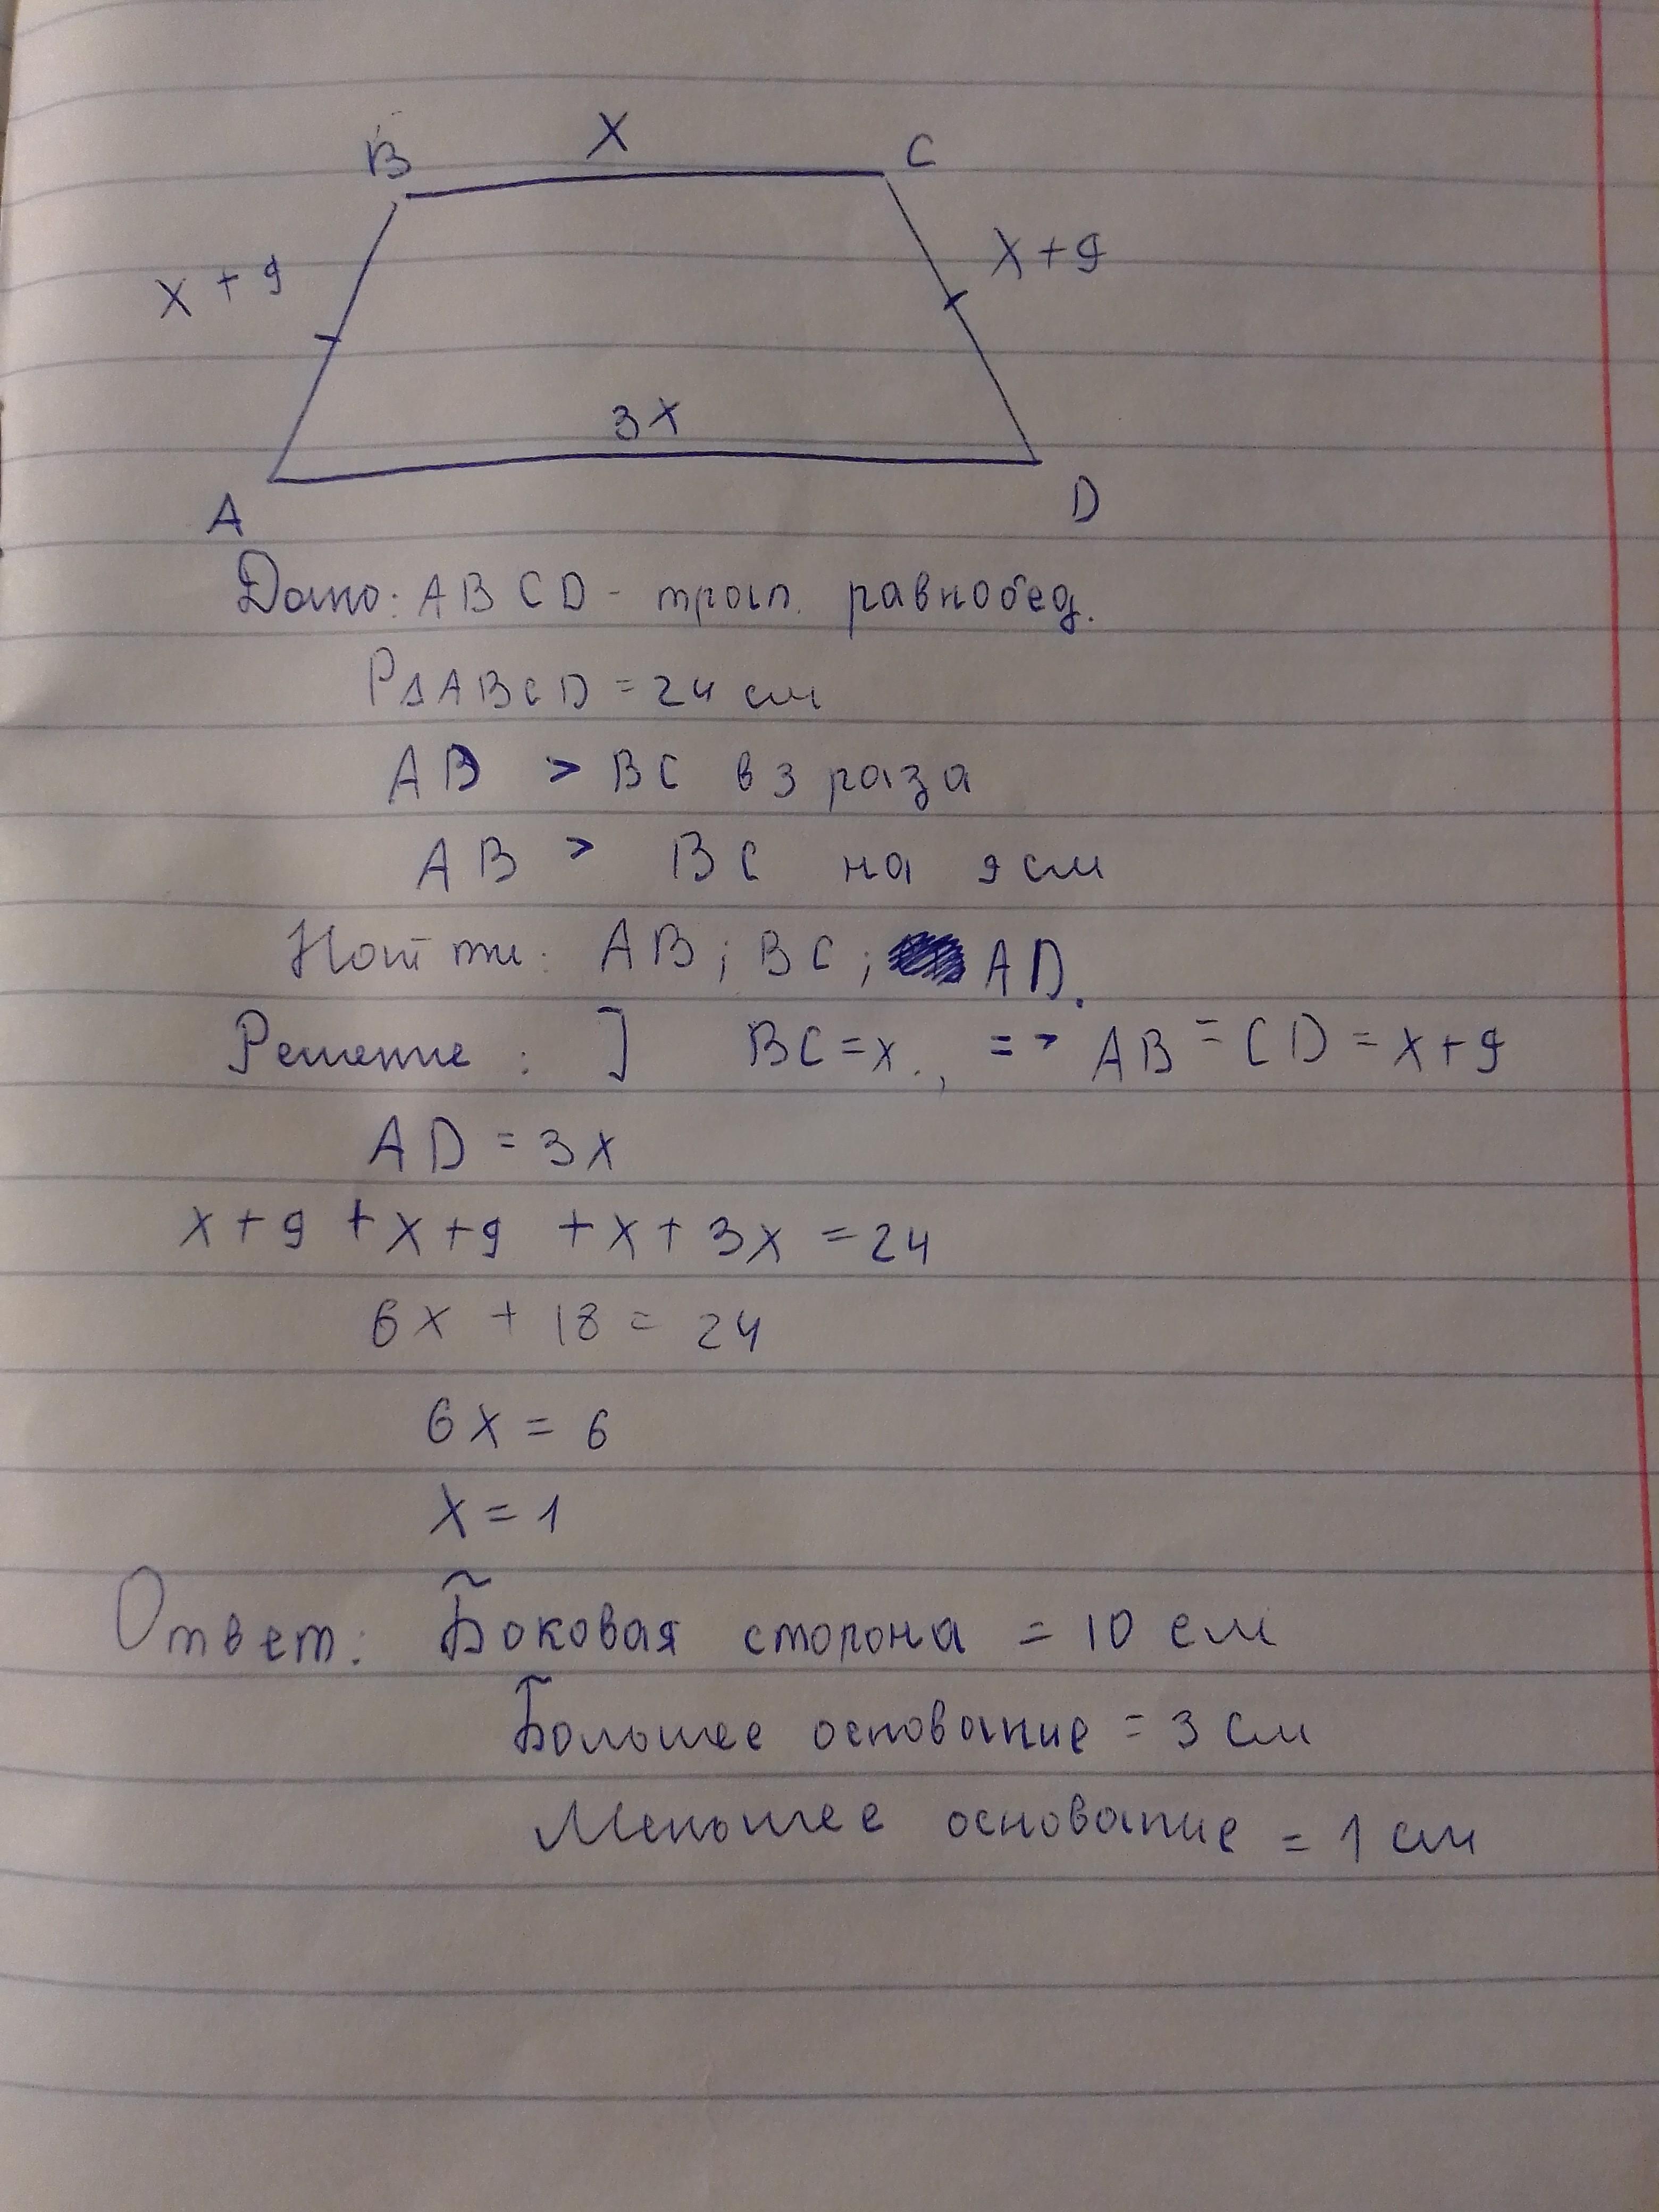 B X C
X + 9 X + 9
3X
A D
Дано: ABCD - трап. равнобед.
P△ABCD = 24 см
AB > BC в 3 раза
AB > BC на 9 см
Найти: AB; BC; AD.
Решение: ] BC = x., => AB = CD = x + 9
AD = 3x
x + 9 + x + 9 + x + 3x = 24
6x + 18 = 24
6x = 6
x = 1
Ответ: Боковая сторона = 10 см
Большее основание = 3 см
Меньшее основание = 1 см